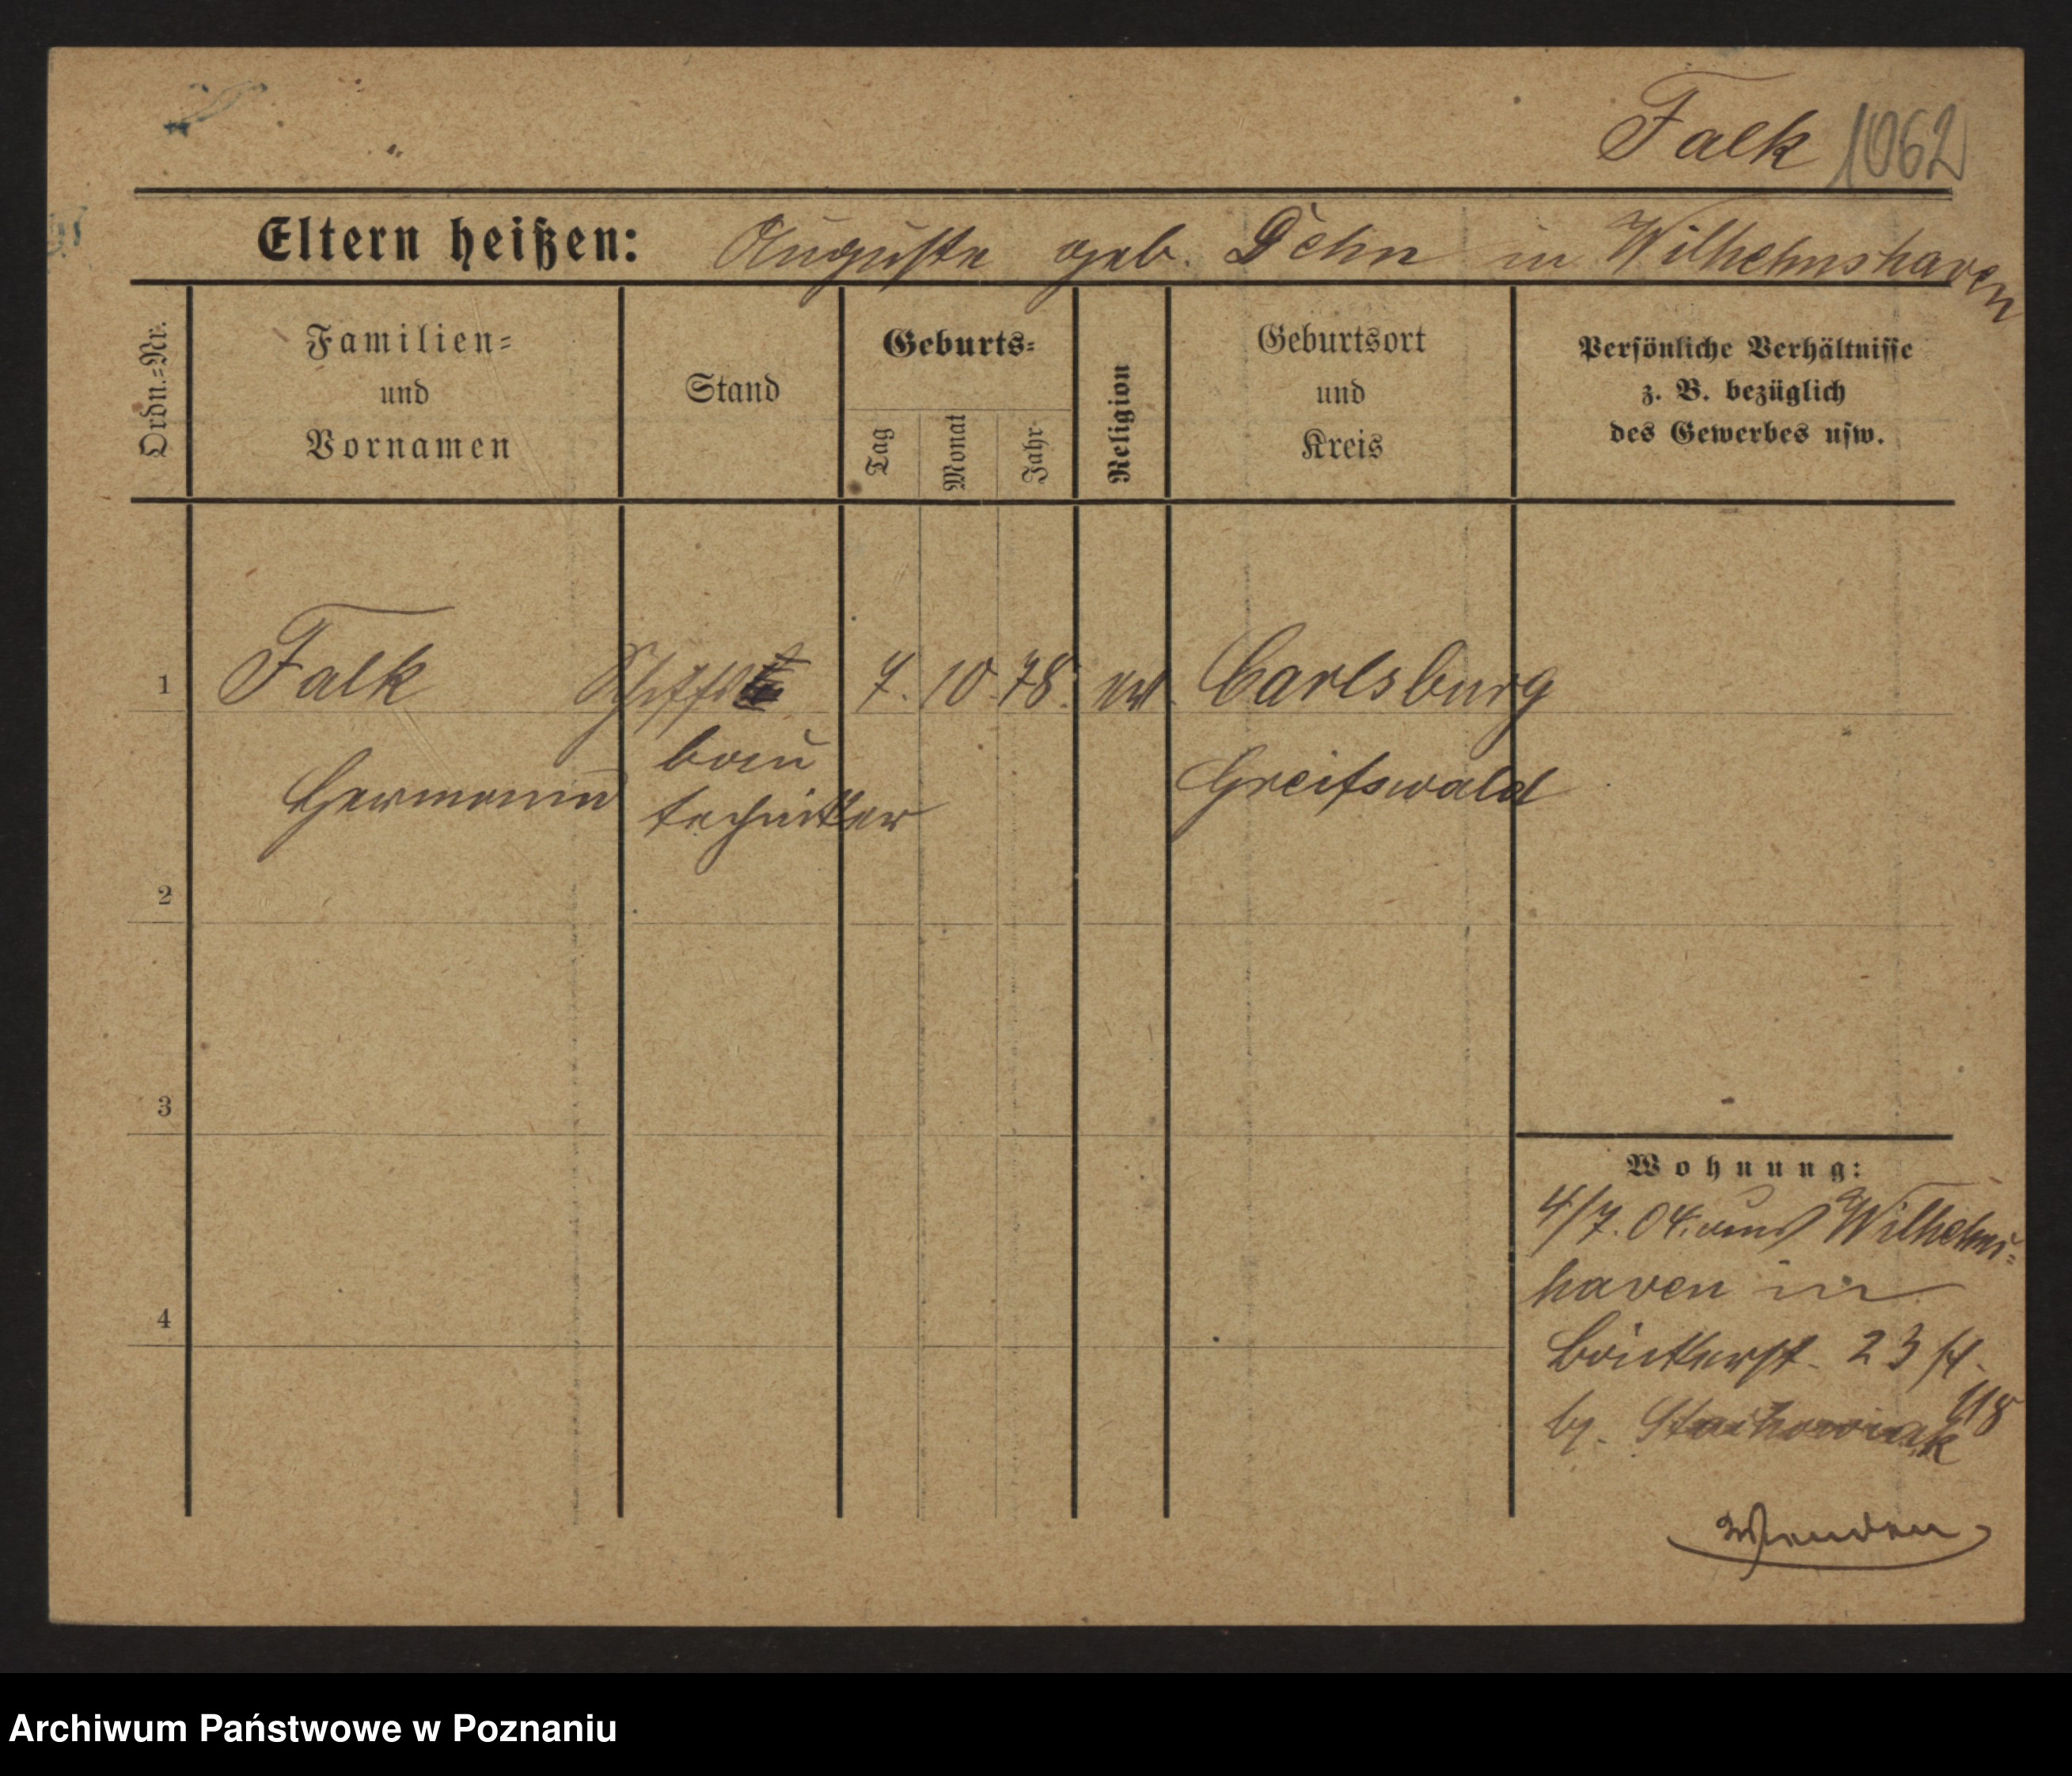 Falk 1062
Eltern heißen: Auguste geb. Dehn in Wilhelmshaven
Ordn.=Nr.
Familien=
und
Vornamen
Stand
Geburts=
Tag
Monat
Jahr
Religion
Geburtsort
und
Kreis
Persönliche Verhältnisse
z. B. bezüglich
des Gewerbes usw.
1 Falk Schiffs 7. 10. 78. ev. Carlsburg
bau
Hermann techniker Greifswald
2
3
4
Wohnung:
4/7. 04. aus Wilhelms-
haven in
23
b/.
Wenden
Archiwum Państwowe w Poznaniu